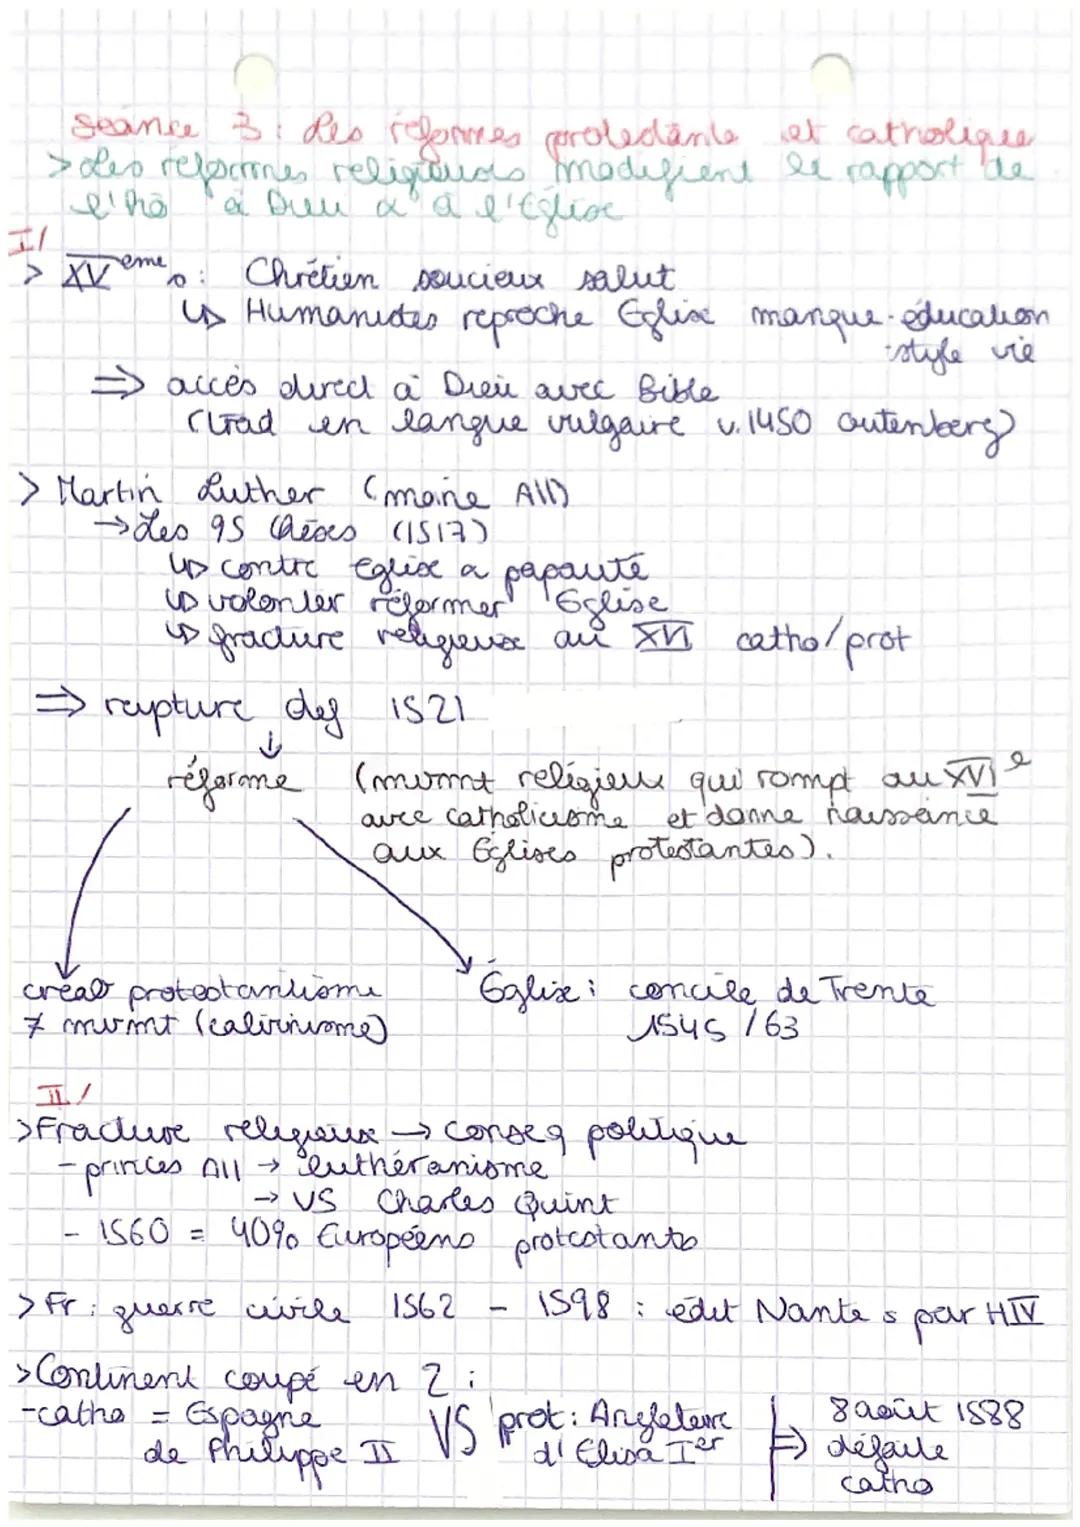 Séance 3 : Les réformes protestante et catholique
> Les réformes religieuses modifient le rapport de
l'hô à Dieu & à l'Église
I/
> XVeme s : Chrétien soucieux salut
↳ Humanistes reproche Eglise manque - éducation
- style vie
⇒ accès direct à Dieu avec Bible
(trad en langue vulgaire v. 1450 Gutenberg)
> Martin Luther (moine All)
→ Les 95 thèses (1517)
↳ contre Eglise & papauté
↳ volonter réformer Eglise
↳ fracture religieuse au XVI catho/prot
⇒ rupture def 1521
↓
réforme (mvmt religieux qui rompt au XVIe
avec catholicisme et donne naissance
aux Eglises protestantes).
créat° protestantisme
≠ mvmt (calvinisme)
Église : concile de Trente
1545 / 63
II/
> Fracture religieuse → conseq politique
- princes All → luthéranisme
→ VS Charles Quint
- 1560 = 40% Européens protestants
> Fr : guerre civile 1562 - 1598 : édit Nantes par HIV
> Continent coupé en 2 :
- catho = Espagne
de Philippe II
VS
prot : Angleterre
d'Elisa Ier
⇒ 8 août 1588
défaite
catho